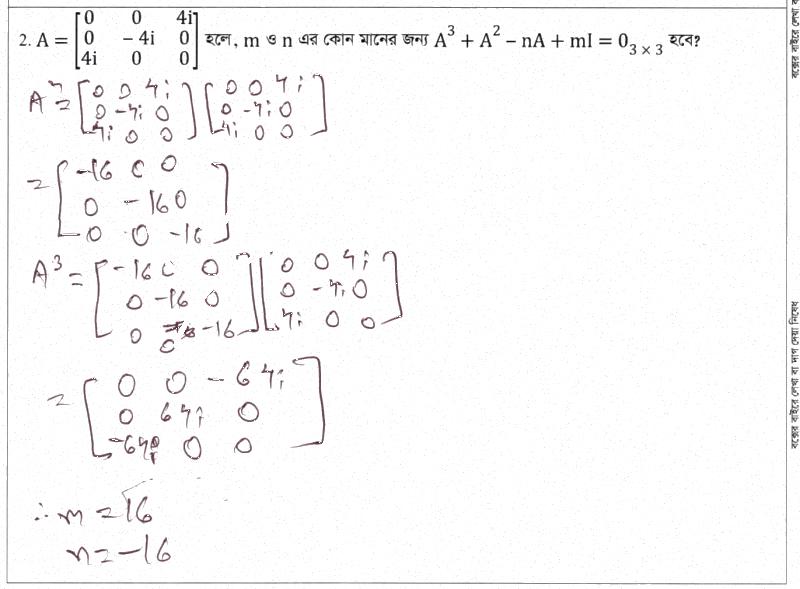 2. A = [0 0 4i; 0 - 4i 0; 4i 0 0] হলে, m ও n এর কোন মানের জন্য A³ + A² – nA + mI = 0₃ ₓ ₃ হবে?
A² = [0 0 4i; 0 -4i 0; 4i 0 0] [0 0 4i; 0 -4i 0; 4i 0 0]
= [-16 0 0; 0 -16 0; 0 0 -16]
A³ = [-16 0 0; 0 -16 0; 0 0 -16] [0 0 4i; 0 -4i 0; 4i 0 0]
= [0 0 -64i; 0 64i 0; -64i 0 0]
∴ m = 16
n = -16
বক্সের বাইরে লেখা বা দাগ দেয়া নিষেধ